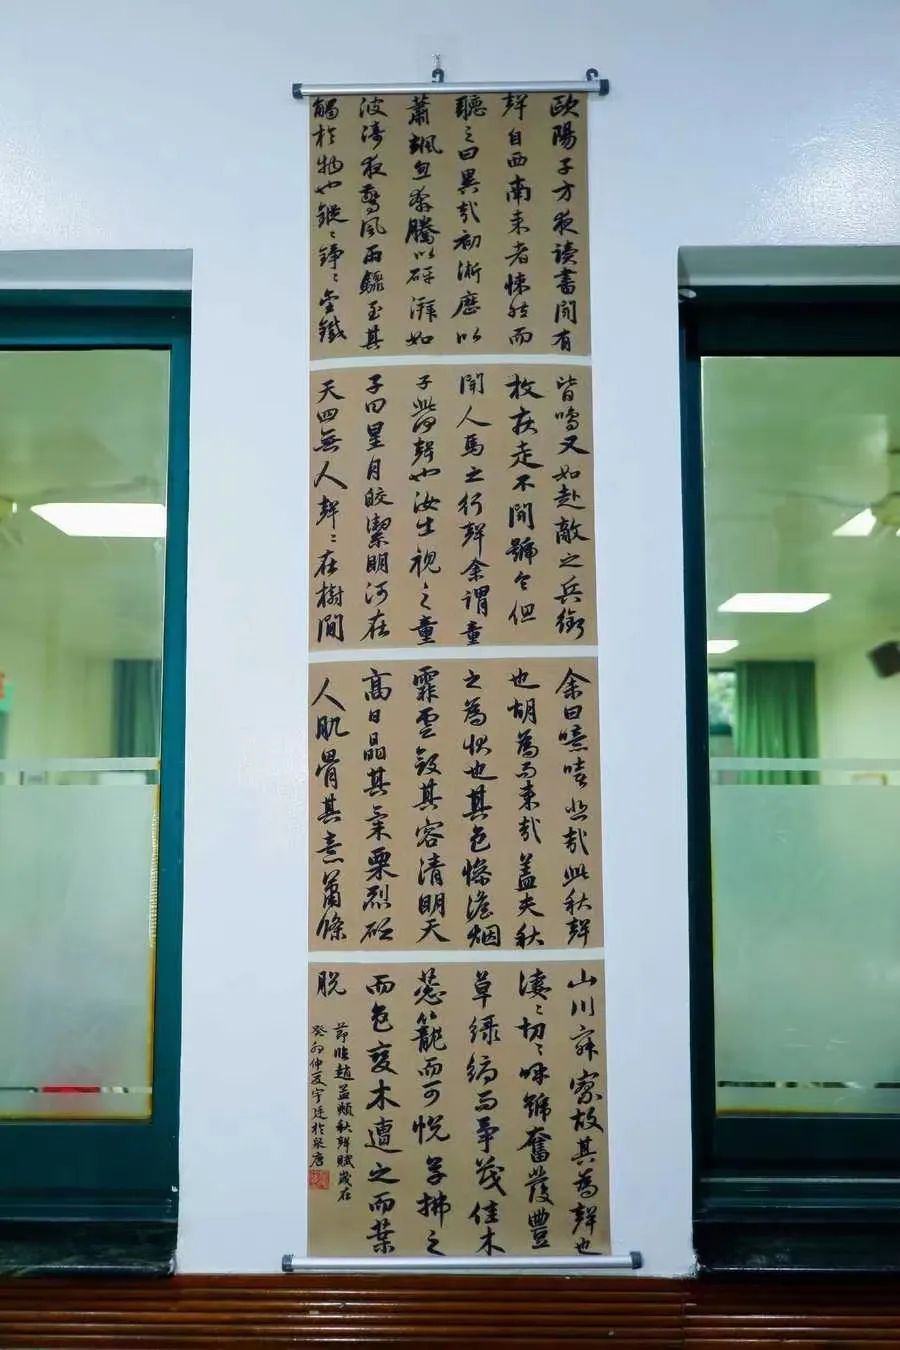 歐陽子方夜讀書聞有
聲自西南來者悚然而
聽之曰異哉初淅瀝以
蕭颯忽奔騰以砰湃如
波濤夜驚風雨驟至其
觸於物也鏦〻錚〻金鐵
皆鳴又如赴敵之兵銜
枚疾走不聞號令但
聞人馬之行聲余謂童
子此何聲也汝出視之童
子曰星月皎潔明河在
天四無人聲〻在樹間
余曰噫嘻悲哉此秋聲
也胡為而來哉蓋夫秋
之為狀也其色慘澹烟
霏雲斂其容清明天
高日晶其氣栗烈砭
人肌骨其意蕭條
山川寂寥故其為聲也
淒〻切〻呼號奮發豐
草綠縟而爭茂佳木
葱籠而可悅草拂之
而色變木遭之而葉
脫
節臨趙孟頫秋聲賦歲在
癸卯仲夏宇廷於泉唐